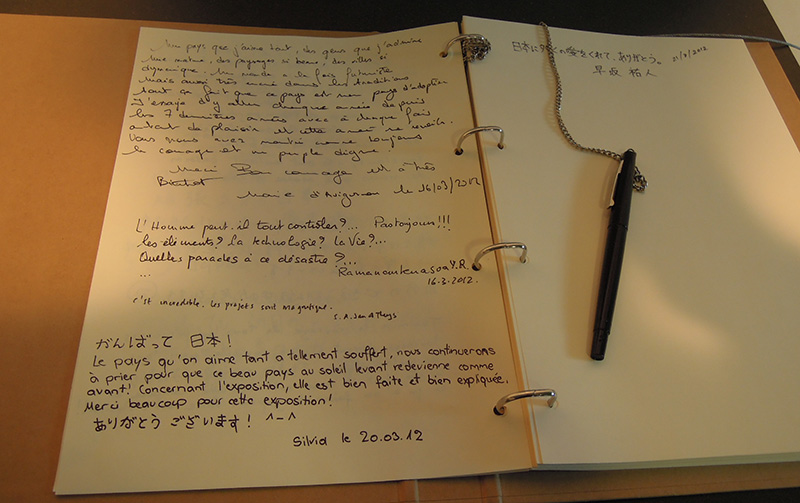 Un pays que j'aime tant, des gens que j'admire
Une nature, des paysages si beaux, des villes si
dynamique. Un monde à la fois futuriste
mais aussi très ancré dans les traditions
tout ça fait que ce pays est mon pays d'adoption
J'essaye d'y aller chaque année depuis
les 7 dernières années avec à chaque fois
autant de plaisir et cette année je
Vous nous avez montré comme toujours
le courage et un peuple digne !
Merci Bon courage et à très
Bientot
Marie d'Avignon le 16/03/2012
L'Homme peut-il tout contrôler?... Pas toujours!!!
les éléments? la technologie? La Vie?...
Quelles parades à ce désastre?...
...
Y.R.
16-3-2012.
C'est incredible. Les projets sont magnifique.
がんばって 日本!
Le pays qu'on aime tant a tellement souffert, nous continuerons
à prier pour que ce beau pays au soleil levant redevienne comme
avant! Concernant l'exposition, elle est bien faite et bien expliquée.
Merci beaucoup pour cette exposition!
ありがとう ございます! ^-^
Silvia le 20.03.12
日本に多くの愛をくれて、ありがとう。 21/3/2012
早坂 裕人